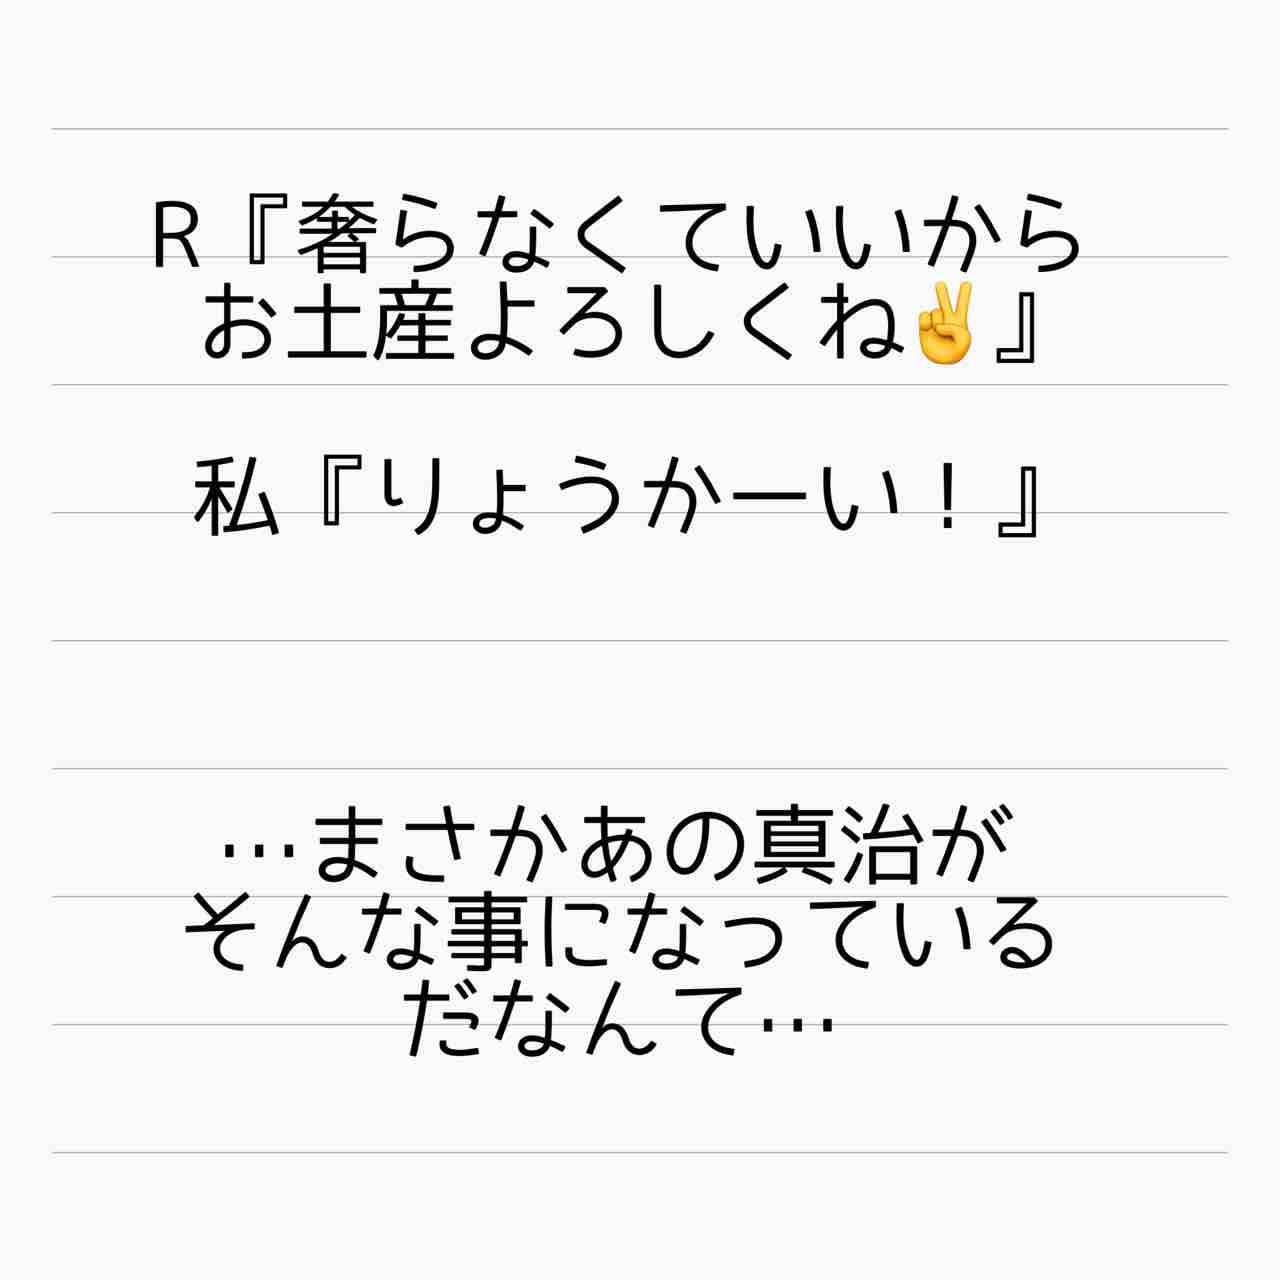 R『奢らなくていいから
お土産よろしくね✌️』
私『りょうかーい！』
…まさかあの真治が
そんな事になっている
だなんて…